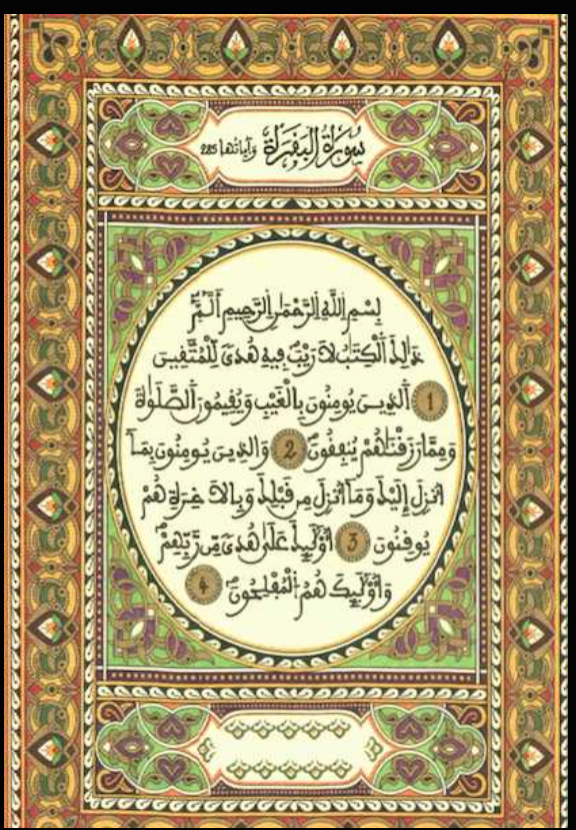 سُورَةُ الْبَقَرَةِ وَآيَاتُهَا 285
بِسْمِ اِللَّهِ اِلرَّحْمَٰنِ اِلرَّحِيمِ أَلَٓمِّٓۖ
ذَٰلِكَ اَ۬لْكِتَٰبُ لَا رَيْبَۖ فِيهِ هُدىٗ لِّلْمُتَّقِينَ
1 اَ۬لذِينَ يُومِنُونَ بِالْغَيْبِ وَيُقِيمُونَ اَ۬لصَّلَوٰةَ
وَمِمَّا رَزَقْنَٰهُمْ يُنفِقُونَۖ 2 وَالذِينَ يُومِنُونَ بِمَآ
أُنزِلَ إِلَيْكَ وَمَآ أُنزِلَ مِن قَبْلِكَ وَبِالَاخِرَةِ هُمْ
يُوقِنُونَ 3 أُوْلَٰٓئِكَ عَلَىٰ هُدىٗ مِّن رَّبِّهِمْۖ
وَأُوْلَٰٓئِكَ هُمُ اُ۬لْمُفْلِحُونَۖ 4